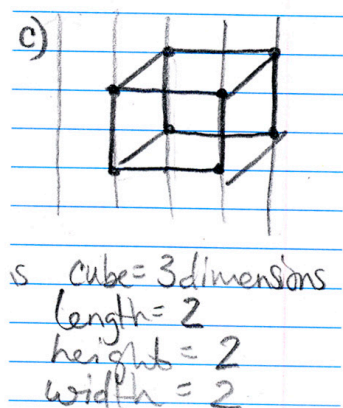 c)
s cube = 3 dimensions
length = 2
height = 2
width = 2